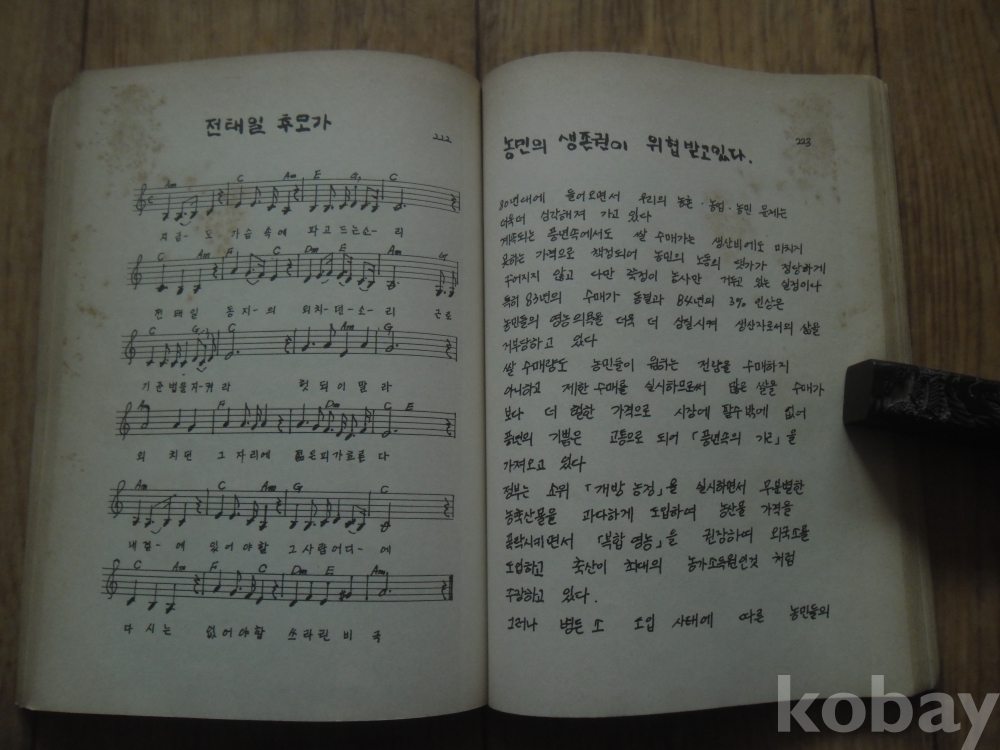 전태일 추모가
222
Am C Am E G7 C
지금-도 가슴 속에 파고드는소-리
C Am F C Am G
전태일 동지-의 외치-던-소-리 근로
C G7 C Am G
기준법을지-켜라 헛되이말라
Am F C Dm C E
외치던 그자리에 젊은피가흐른다
Am C Am G C
내곁-에 있어야할 그사람어디-에
C Am F C Dm E Am
다시는 없어야할 쓰라린비극
223
농민의 생존권이 위협받고있다.
80년대에 들어오면서 우리의 농촌·농업·농민 문제는
더욱더 심각해져 가고 있다
계속되는 풍년속에서도 쌀 수매가는 생산비에도 미치지
못하는 가격으로 책정되어 농민의 노동의 댓가가 정당하게
주어지지 않고 다만 쭉정이 농사만 거두고 있는 실정이다
특히 83년의 수매가 동결과 84년의 3% 인상은
농민들의 영농의욕을 더욱 더 상실시켜 생산자로서의 삶을
거부당하고 있다
쌀 수매량도 농민들이 원하는 전량을 수매하지
아니하고 제한 수매를 실시하므로써 많은 쌀을 수매가
보다 더 헐한 가격으로 시장에 팔수밖에 없어
풍년의 기쁨은 고통으로 되어 「풍년속의 기근」을
가져오고 있다
정부는 소위 「개방 농정」을 실시하면서 무분별한
농축산물을 과다하게 도입하여 농산물 가격을
폭락시키면서 「복합 영농」을 권장하여 외국소를
도입하고 축산이 최대의 농가소득원인것 처럼
주장하고 있다.
그러나 병든 소 도입 사태에 따른 농민들의
kobay